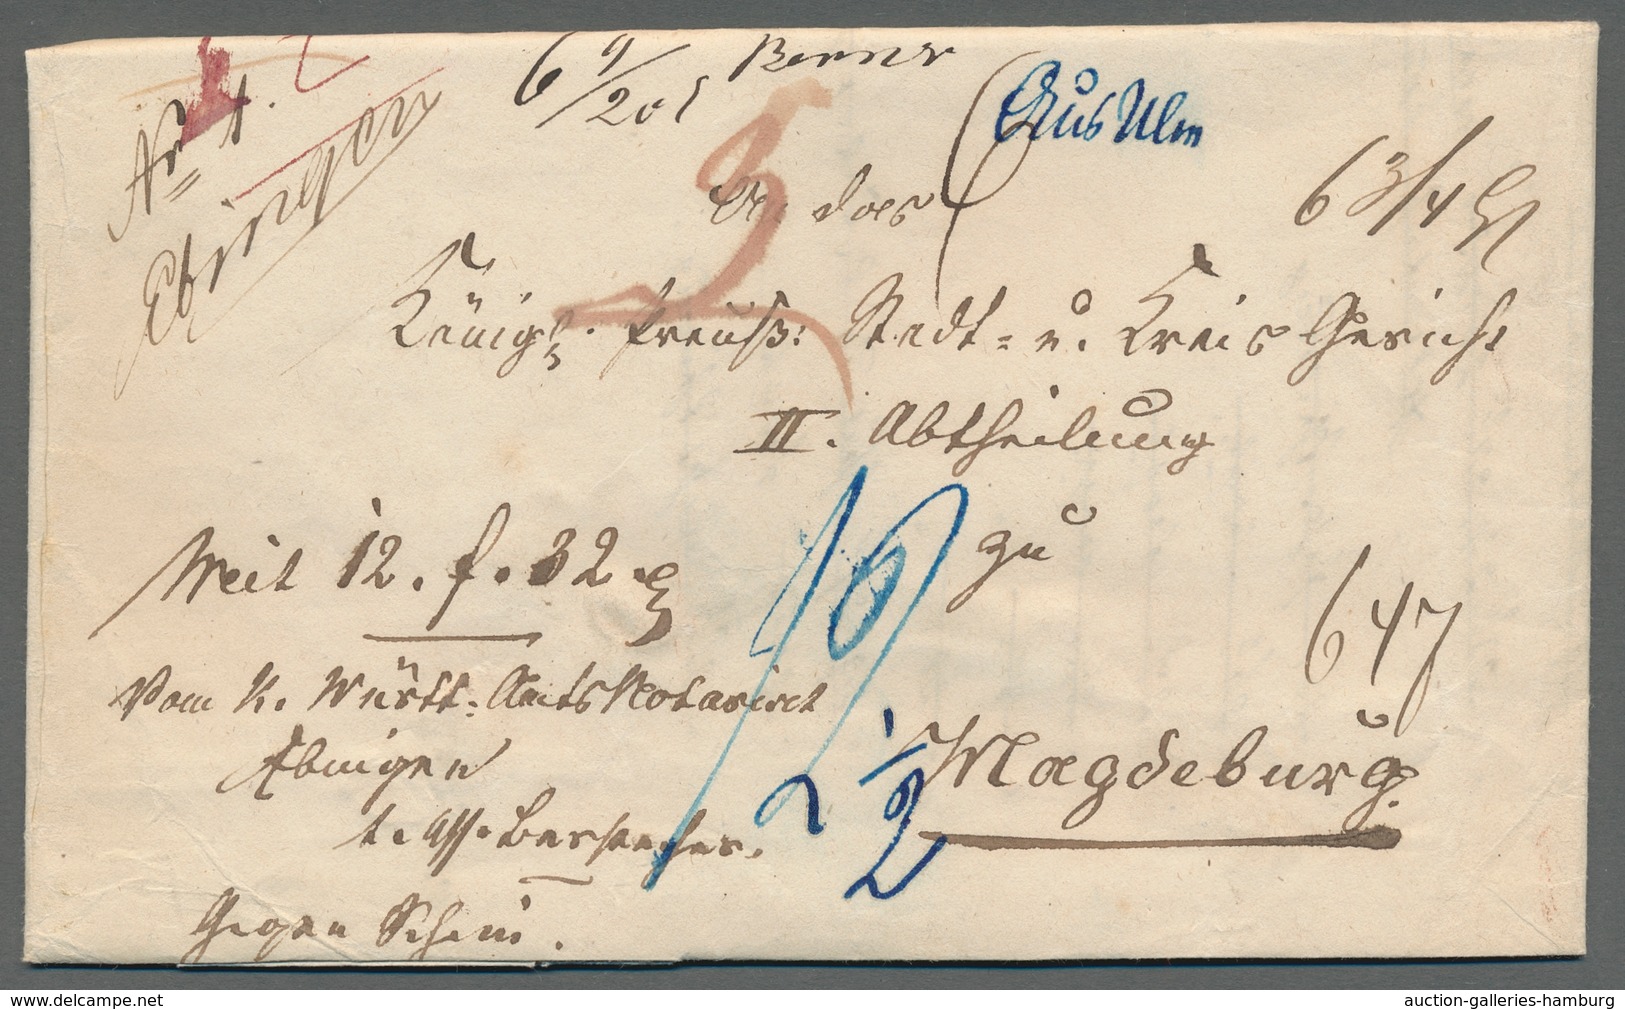 Nr. 1.
Ebingen
6 9/201
Aus Ulm
An das
6 3/4
Königl. Preuß: Stadt- u. Kreis Gericht
II. Abtheilung
zu
Magdeburg.
Mit 12. f. 32
647
Vom K. Württ: AmtsNotariat
Ebingen
Gegen Schein.
10
2 1/2
www.delcampe.net
auction-galleries-hamburg